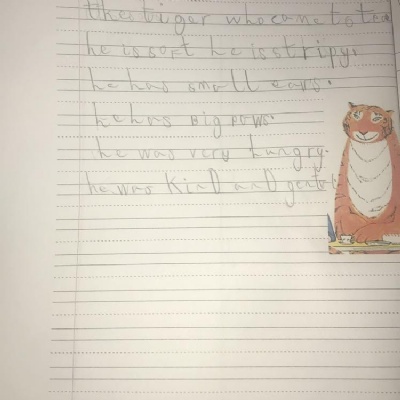 the tiger who came to tea
he is soft he is stripy.
he has small ears.
he has Big paws.
he was very hungry.
he was KinD anD gentel